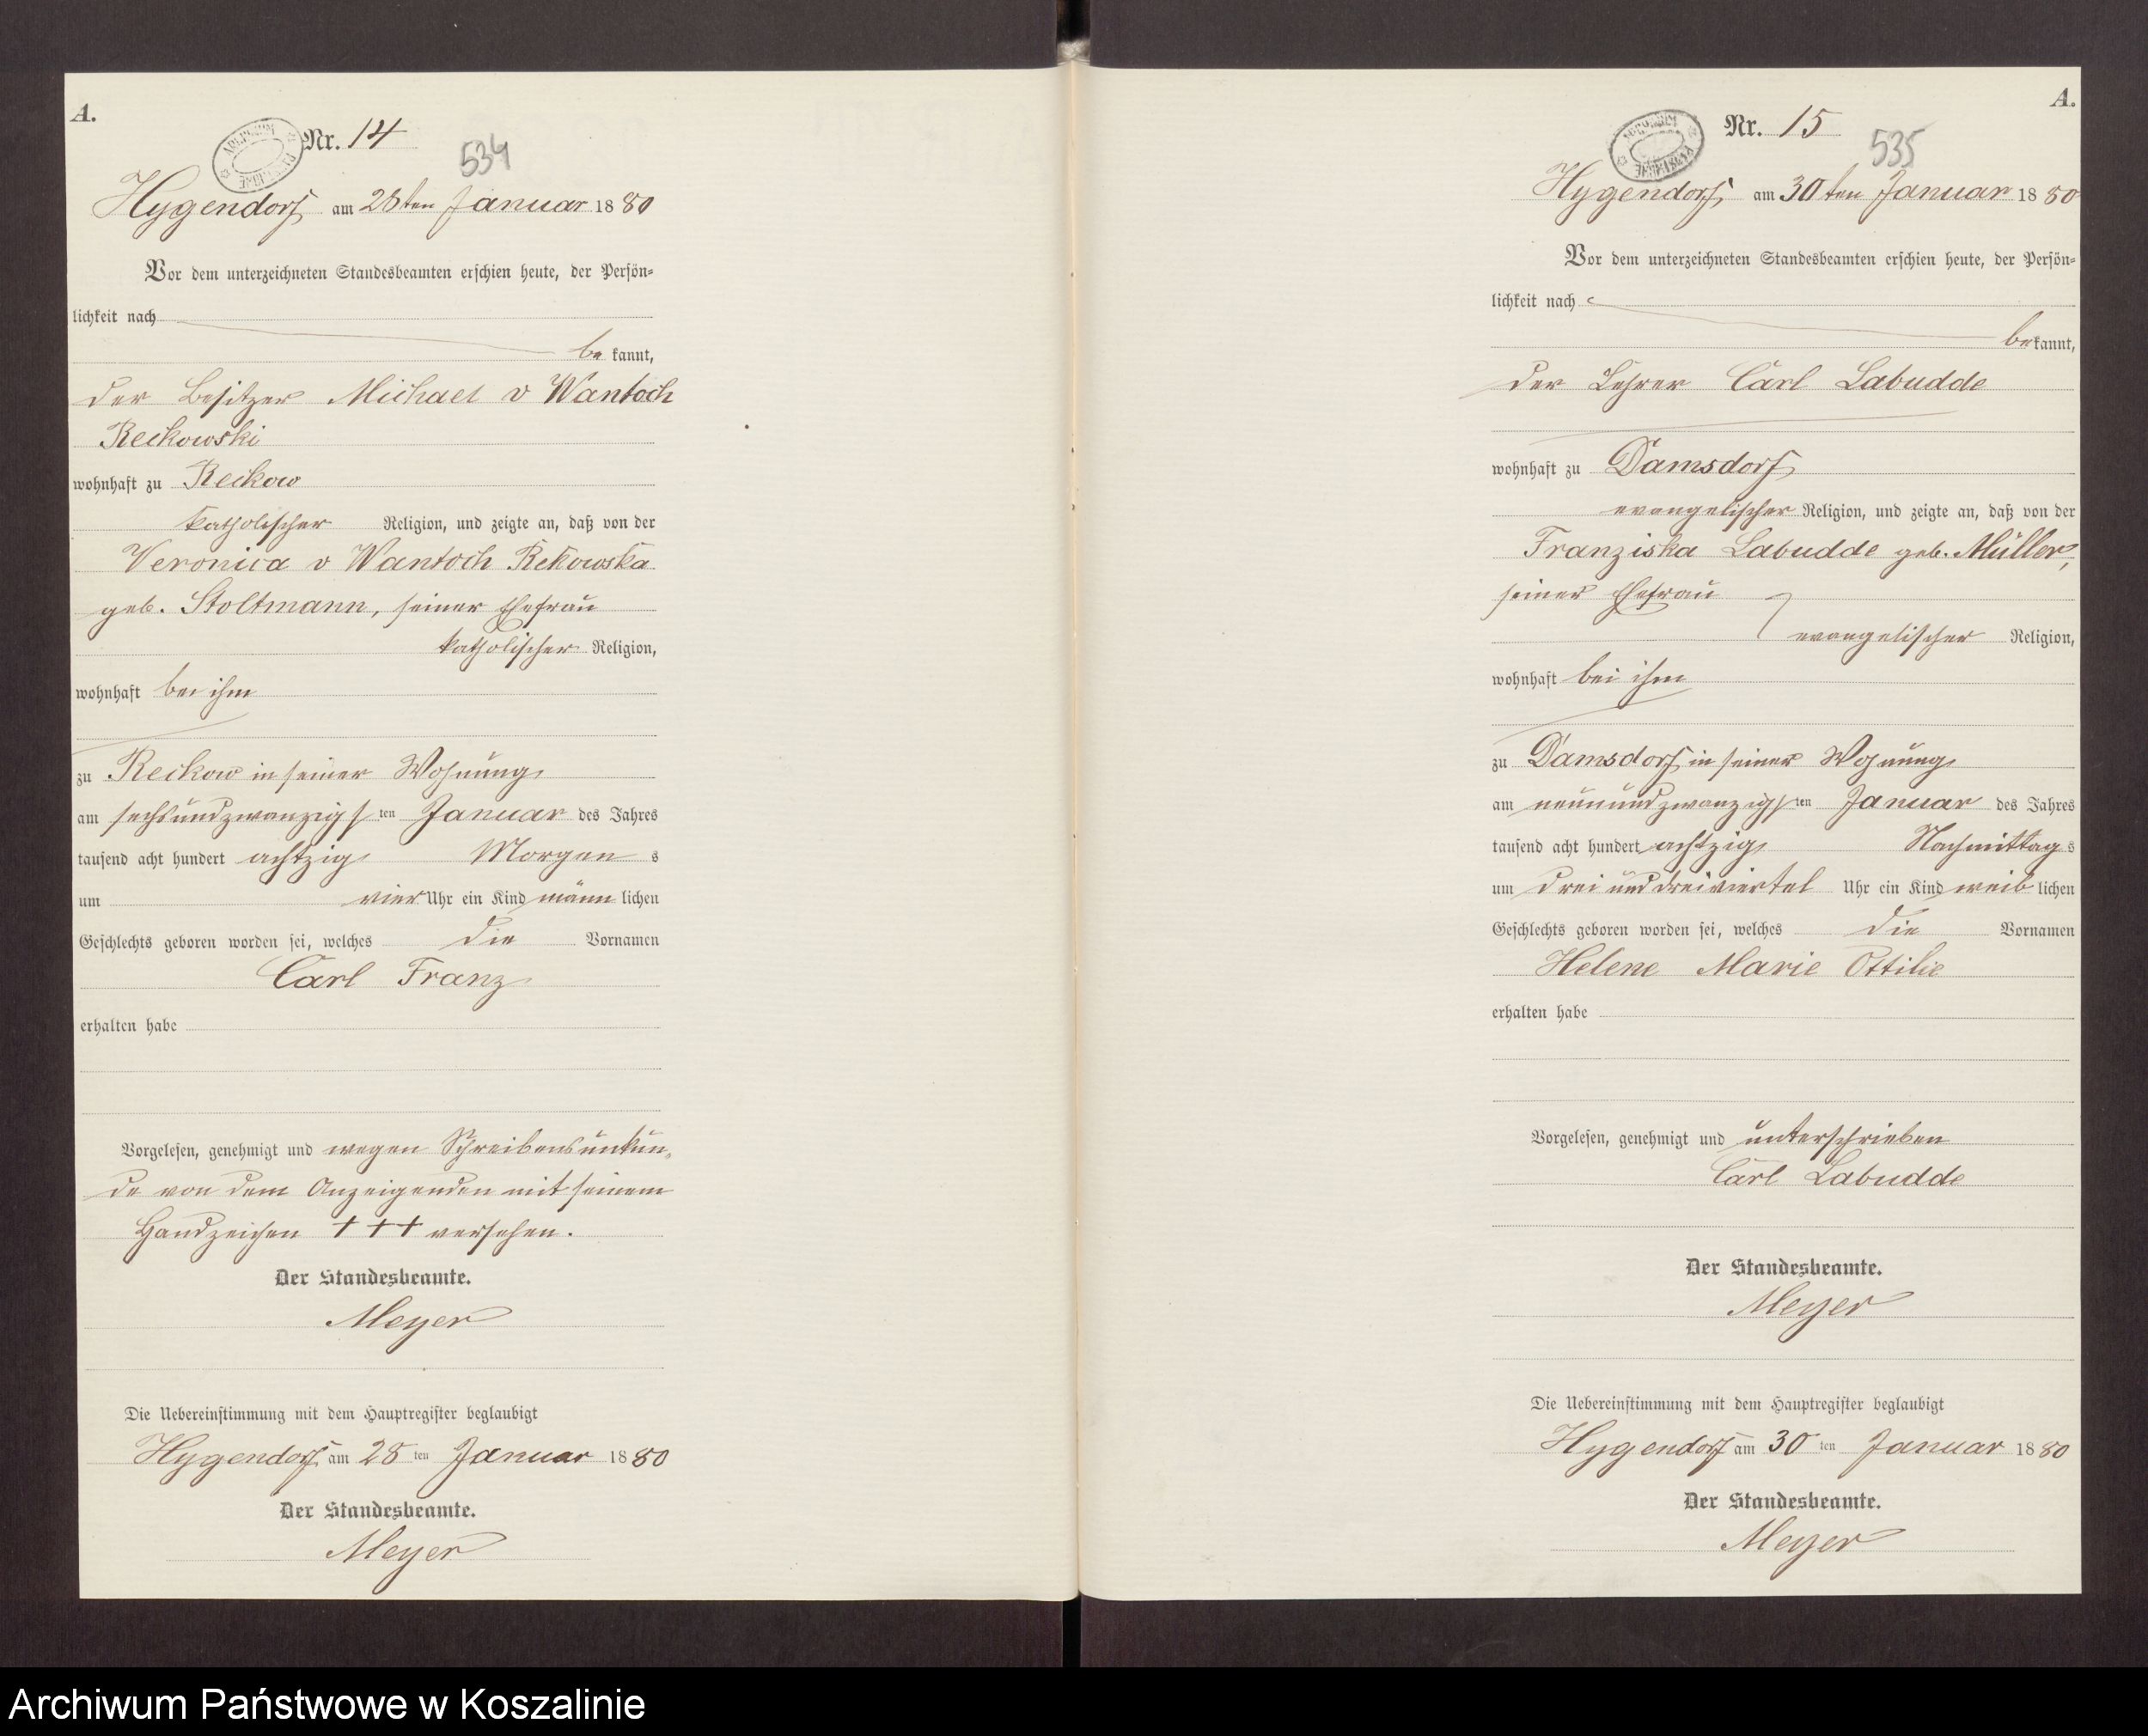 A.
Nr. 14
534
Hygendorf am 28ten Januar 1880
Vor dem unterzeichneten Standesbeamten erschien heute, der Persön-
lichkeit nach
bekannt,
der Besitzer Michael v Wantoch
Reckowski
wohnhaft zu Reckow
katholischer Religion, und zeigte an, daß von der
Veronica v Wantoch Rekowska
geb. Stoltmann, seiner Ehefrau
katholischer Religion,
wohnhaft bei ihm
zu Reckow in seiner Wohnung
am sechsundzwanzigsten Januar des Jahres
tausend acht hundert achtzig Morgens
um vier Uhr ein Kind männlichen
Geschlechts geboren worden sei, welches die Vornamen
Carl Franz
erhalten habe
Vorgelesen, genehmigt und wegen Schreibensunkun-
de von dem Anzeigenden mit seinem
Handzeichen +++ versehen.
Der Standesbeamte.
Meyer
Die Uebereinstimmung mit dem Hauptregister beglaubigt
Hygendorf am 28ten Januar 1880
Der Standesbeamte.
Meyer
A.
Nr. 15
535
Hygendorf, am 30ten Januar 1880
Vor dem unterzeichneten Standesbeamten erschien heute, der Persön-
lichkeit nach
bekannt,
der Lehrer Carl Labudde
wohnhaft zu Damsdorf
evangelischer Religion, und zeigte an, daß von der
Franziska Labudde geb. Müller,
seiner Ehefrau
evangelischer Religion,
wohnhaft bei ihm
zu Damsdorf in seiner Wohnung
am neunundzwanzigsten Januar des Jahres
tausend acht hundert achtzig Nachmittags
um drei und dreiviertel Uhr ein Kind weiblichen
Geschlechts geboren worden sei, welches die Vornamen
Helene Marie Ottilie
erhalten habe
Vorgelesen, genehmigt und unterschrieben
Carl Labudde
Der Standesbeamte.
Meyer
Die Uebereinstimmung mit dem Hauptregister beglaubigt
Hygendorf am 30ten Januar 1880
Der Standesbeamte.
Meyer
Archiwum Państwowe w Koszalinie